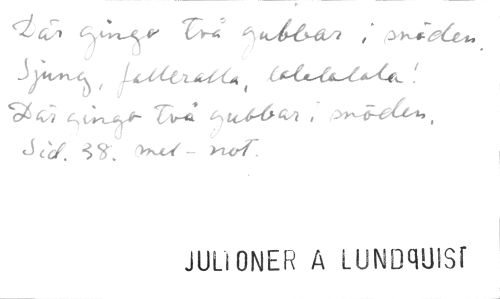 Där gingo två gubbar i snöden.
Sjung, falleralla, lalelalala!
Där gingo två gubbar i snöden.
Sid. 38. mel-not.
JULIONER A LUNDQUIST